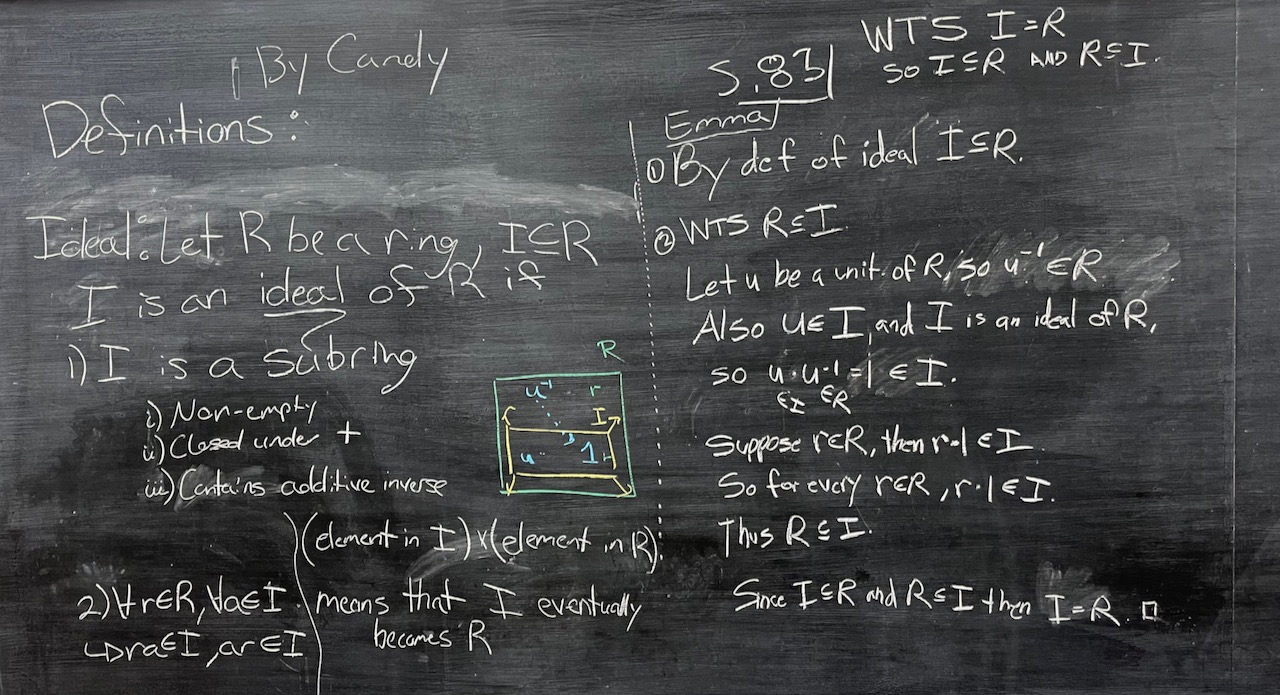 By Candy
Definitions:
Ideal: Let R be a ring, I⊆R
I is an ideal of R if
1) I is a subring
i) Non-empty
ii) Closed under +
iii) Contains additive inverse
2) ∀r∈R, ∀a∈I
↳ ra∈I, ar∈I
(element in I)×(element in R)
means that I eventually
becomes R
R
u⁻¹ r
I
u 1
5.83
WTS I=R
SO I⊆R AND R⊆I.
Emma
① By def of ideal I⊆R.
② WTS R⊆I
Let u be a unit of R, so u⁻¹∈R
Also u∈I, and I is an ideal of R,
so u·u⁻¹=1 ∈ I.
∈I ∈R
Suppose r∈R, then r·1 ∈ I
So for every r∈R, r·1 ∈ I.
Thus R⊆I.
Since I⊆R and R⊆I then I=R. □